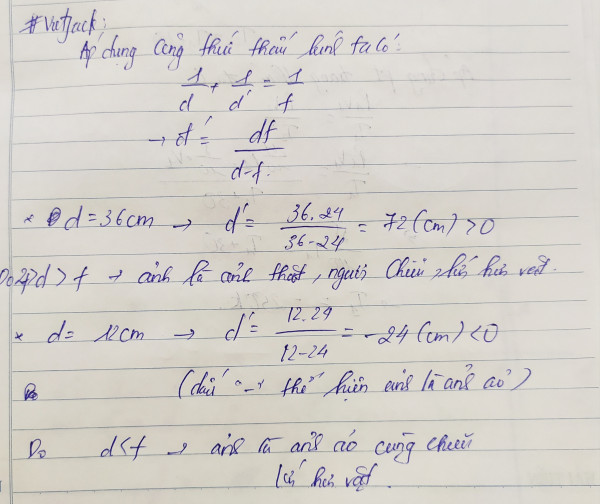 #VietJack:
Áp dụng công thức thấu kính ta có:
1/d + 1/d' = 1/f
→ d' = df/(d-f)
* d = 36cm → d' = 36.24/(36-24) = 72 (cm) > 0
Do 2f > d > f → ảnh là ảnh thật, ngược chiều, lớn hơn vật.
* d = 12cm → d' = 12.24/(12-24) = -24 (cm) < 0
(dấu "-" thể hiện ảnh là ảnh ảo)
Do d < f → ảnh là ảnh ảo cùng chiều
lớn hơn vật.